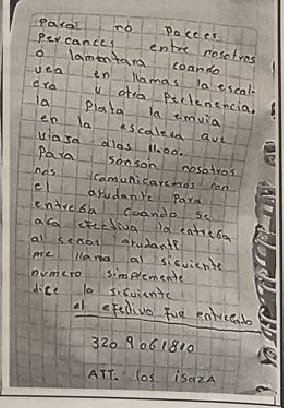 para no poxcer
percances entre nosotros
o lamontara coando
vea en llamas la escal-
era u otra pertenencia.
la plata la envia
en la escalera que
viasa alas 11.00.
Para sonson nosotros
nos comunicaremos con
el ayudante para
entrega cuando se
aga efectiva la entrega
al señor ayudante
me llama al siguiente
numero simplemente
dice lo siguiente
el efectivo fue entregado
320 9061810
ATT. los isazA